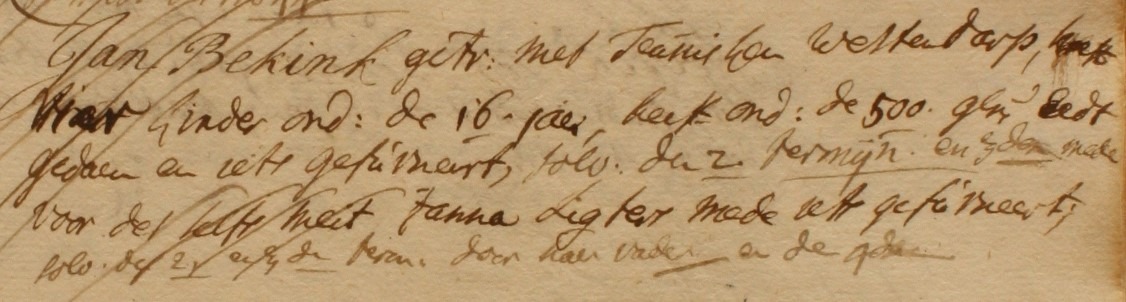 Jan Bekink getr: met Teunisken Westendarp, heeft
vier kinder ond: de 16. jaer, heeft ond: de 500. gl: Eedt
gedaen en iets gefurneert, solv. den 2. termijn. en de mede
voor des selfs meit Janna Ligters mede iets gefurneert,
solv. de 2. en de term. door haer vader en de